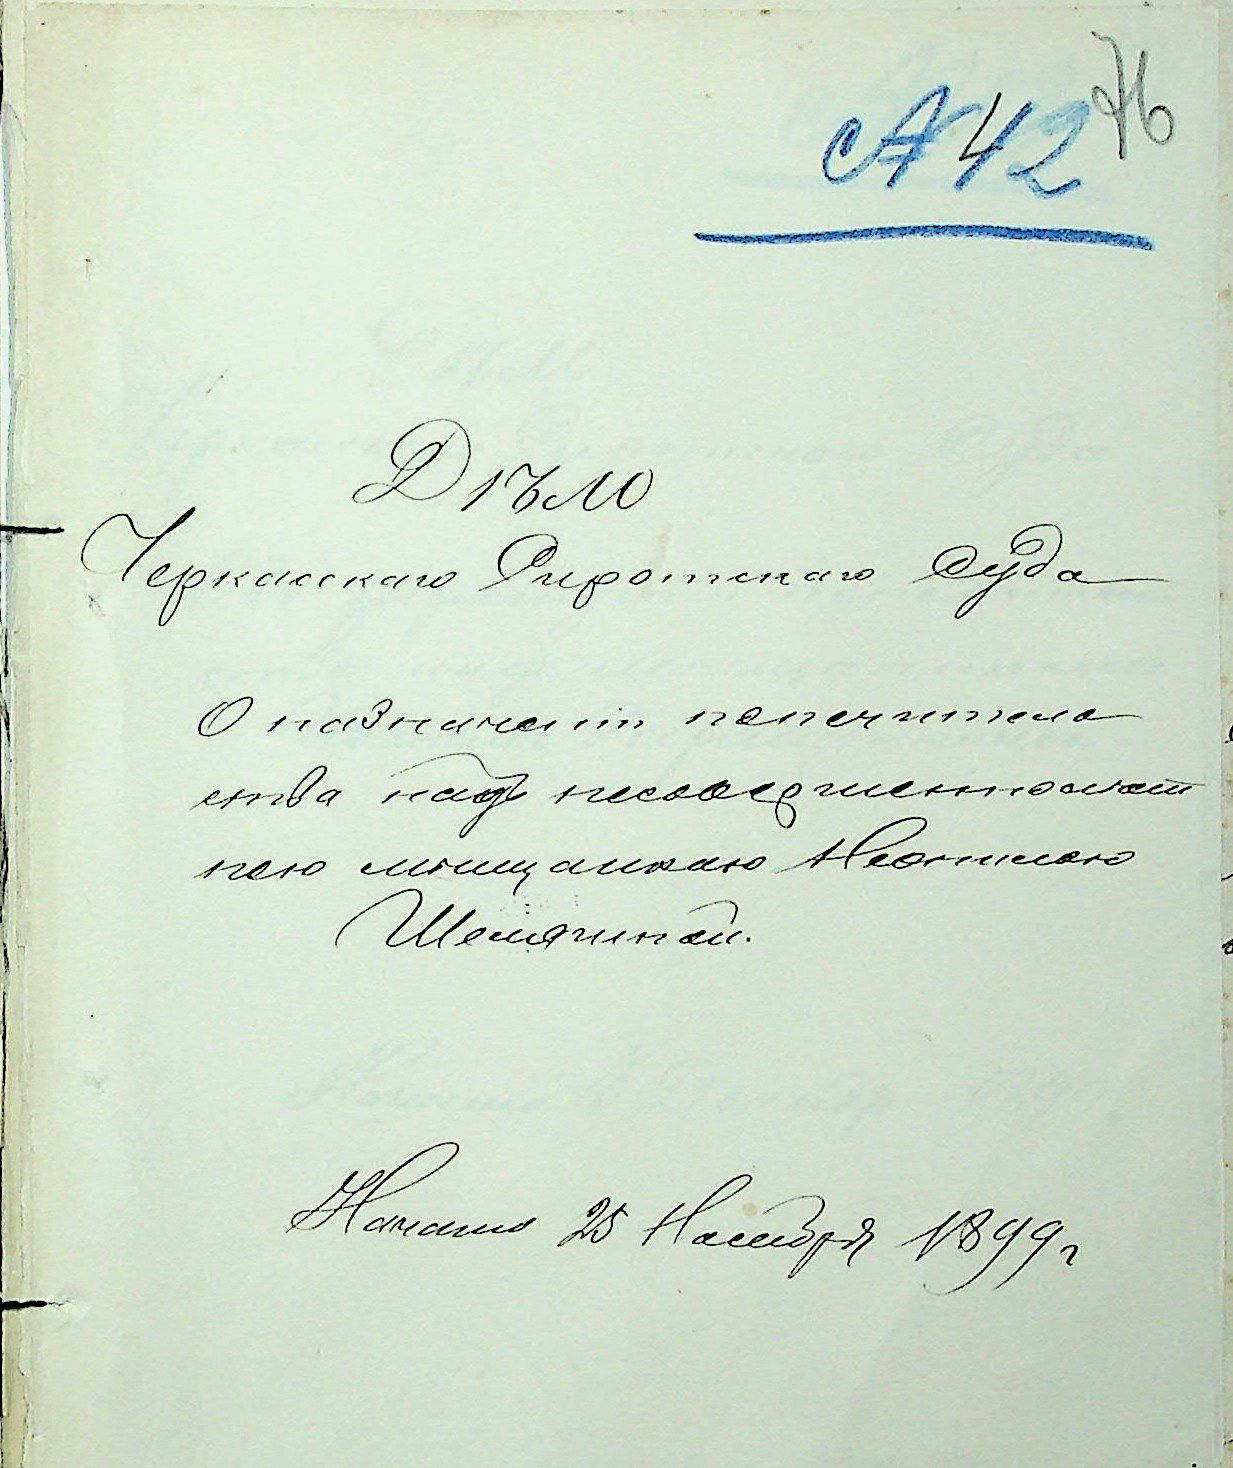 76
№ 42
Дѣло
Черкасскаго Сиротскаго Суда
О назначеніи попечитель
ства надъ несовершеннолѣт
нею мѣщанкою
Шемякиной.
Начато 25 Ноября 1899 г